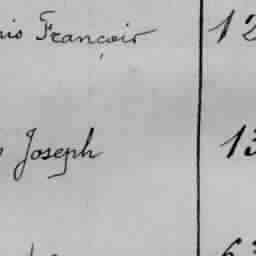 François 12
Joseph 13